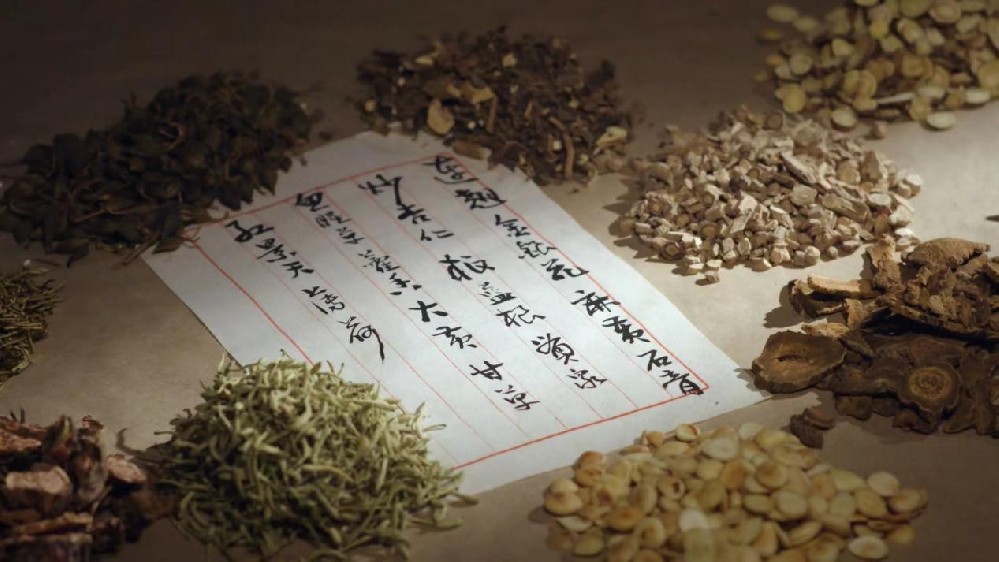 连翘 金銀花 麻黄 石膏
炒杏仁 板蓝根 貫衆
鱼腥草 藿香 大黄 甘草
红景天 薄荷